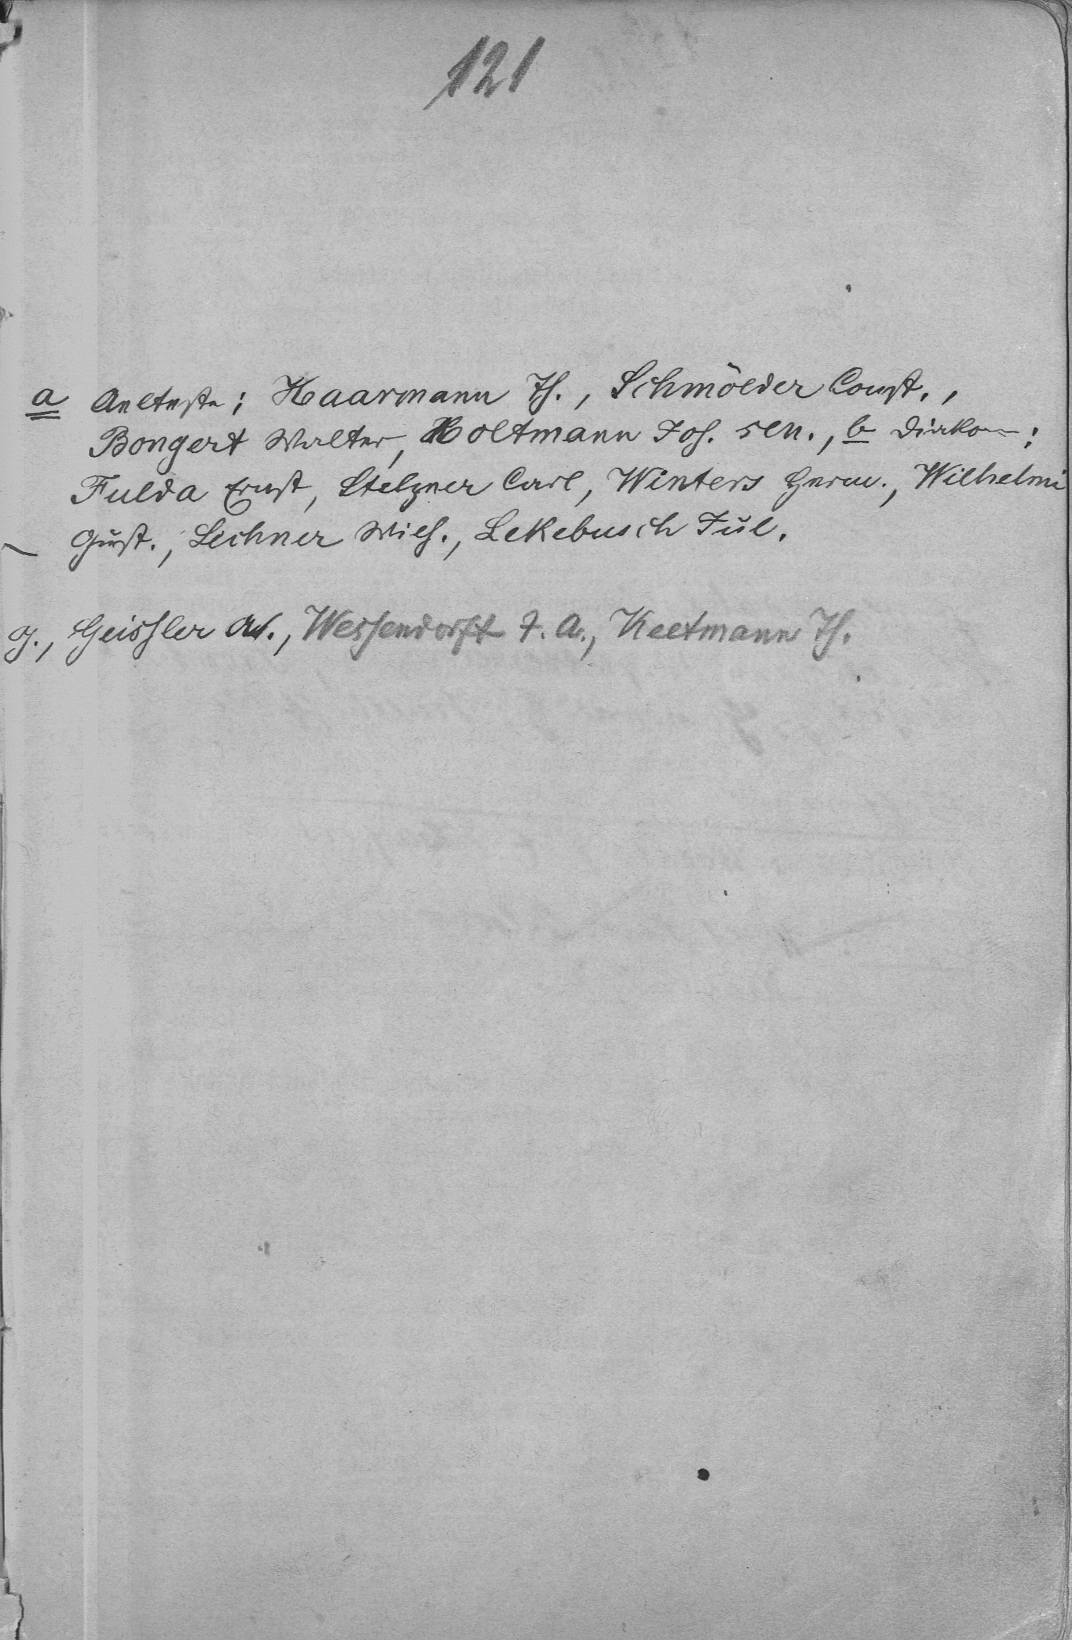 121
a Aelteste: Haarmann Th., Schmölder Const.,
Bongert Walter, Holtmann Joh. sen., b Diakon:
Fulda Ernst, Stelzner Carl, Winters Herm., Wilhelmi
Gust., Lechner Wilh., Lekebusch Jul.
Geissler Ad., Wessendorft F. A., Keetmann Th.